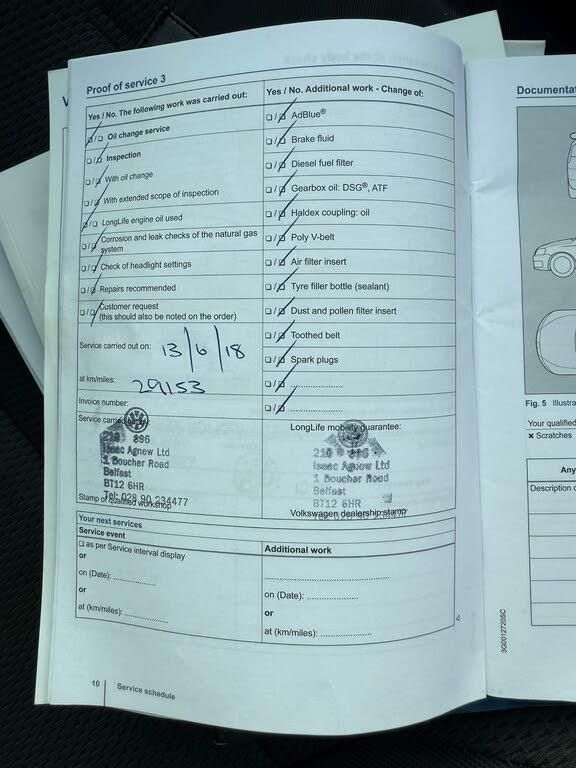 Proof of service 3
Yes / No. The following work was carried out:
❑ / ❑ Oil change service
❑ / ❑ Inspection
❑ / ❑ With oil change
❑ / ❑ With extended scope of inspection
❑ / ❑ LongLife engine oil used
❑ / ❑ Corrosion and leak checks of the natural gas
system
❑ / ❑ Check of headlight settings
❑ / ❑ Repairs recommended
❑ / ❑ Customer request
(this should also be noted on the order)
Service carried out on: 13/6/18
at km/miles: 29153
Invoice number:
Service carried
896
Isaac Agnew Ltd
1 Boucher Road
Belfast
BT12 6HR
Tel: 028 90 234477
Stamp of qualified workshop
Yes / No. Additional work - Change of:
❑ / ❑ AdBlue®
❑ / ❑ Brake fluid
❑ / ❑ Diesel fuel filter
❑ / ❑ Gearbox oil: DSG®, ATF
❑ / ❑ Haldex coupling: oil
❑ / ❑ Poly V-belt
❑ / ❑ Air filter insert
❑ / ❑ Tyre filler bottle (sealant)
❑ / ❑ Dust and pollen filter insert
❑ / ❑ Toothed belt
❑ / ❑ Spark plugs
❑ / ❑ ....................
❑ / ❑ ....................
LongLife mobility guarantee:
Isaac Agnew Ltd
1 Boucher Road
Belfast
BT12 6HR
Volkswagen dealership stamp
Your next services
Service event
❑ as per Service interval display
or
on (Date): ................
or
at (km/miles): ................
Additional work
................................................
on (Date): ...................
or
at (km/miles): ...................
10 Service schedule
Documentat
Fig. 5 Illustra
Your qualified
× Scratches
Any
Description o
3G0012720SC